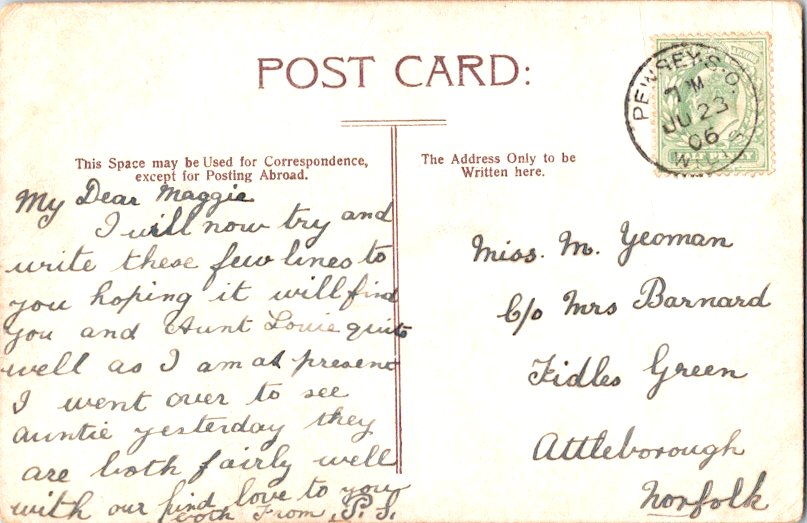 POST CARD:
PEWSEY.S.O.
7 M
JU 23
06
This Space may be Used for Correspondence,
except for Posting Abroad.
The Address Only to be
Written here.
My Dear Maggie
I will now try and
write these few lines to
you hoping it will find
you and Aunt Louie quite
well as I am at present
I went over to see
auntie yesterday they
are both fairly well
with our kind love to you
both From
Miss. M. Yeoman
C/o Mrs Barnard
Fidles Green
Attleborough
Norfolk